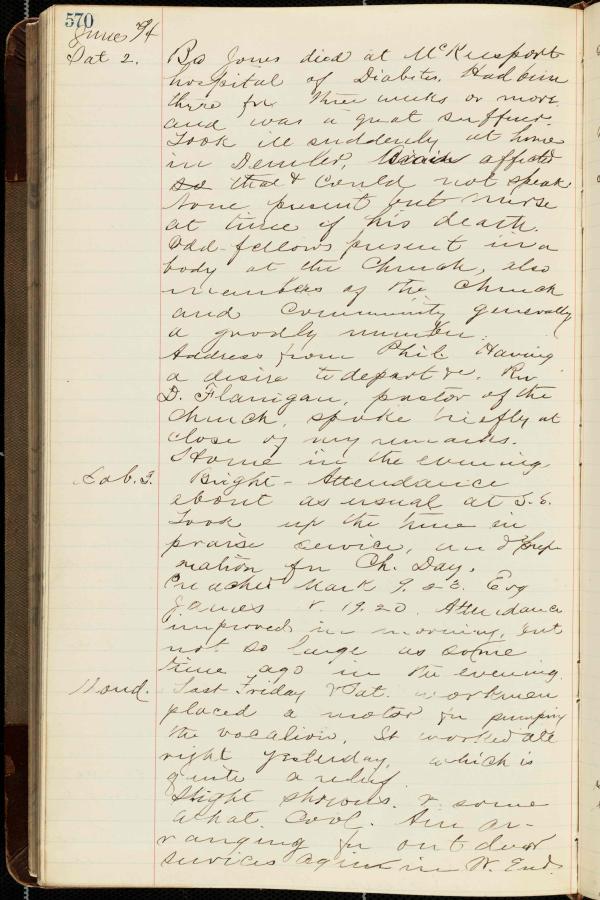 570
June /94
Sat 2. Bro Jones died at McKeesport
hospital of Diabetes. Had been
there for three weeks or more
and was a great sufferer.
Took ill suddenly at home
in Demler, Brain affected
so that he could not speak
None present but nurse
at time of his death.
Odd-fellows present in a
body at the Church, also
members of the Church
and Community generally
a goodly number.
Address from Phil. Having
a desire to depart &c. Rev
D. Flanigan, pastor of the
Church, spoke briefly at
close of my remarks.
Home in the evening.
Sab. 3. Bright - Attendance
about as usual at S.S.
Took up the time in
praise service, and prep
aration for Ch. Day.
Preached Mark 9. 23. Evg
James 5. 19.20. Attendance
improved in morning, but
not so large as some
time ago in the evening.
Mond. Last Friday & Sat. workmen
placed a motor for pumping
the vocalion. It worked all
right yesterday, which is
quite a relief
Slight showers. & some
what cool. Am ar-
ranging for out door
services again in W. End.